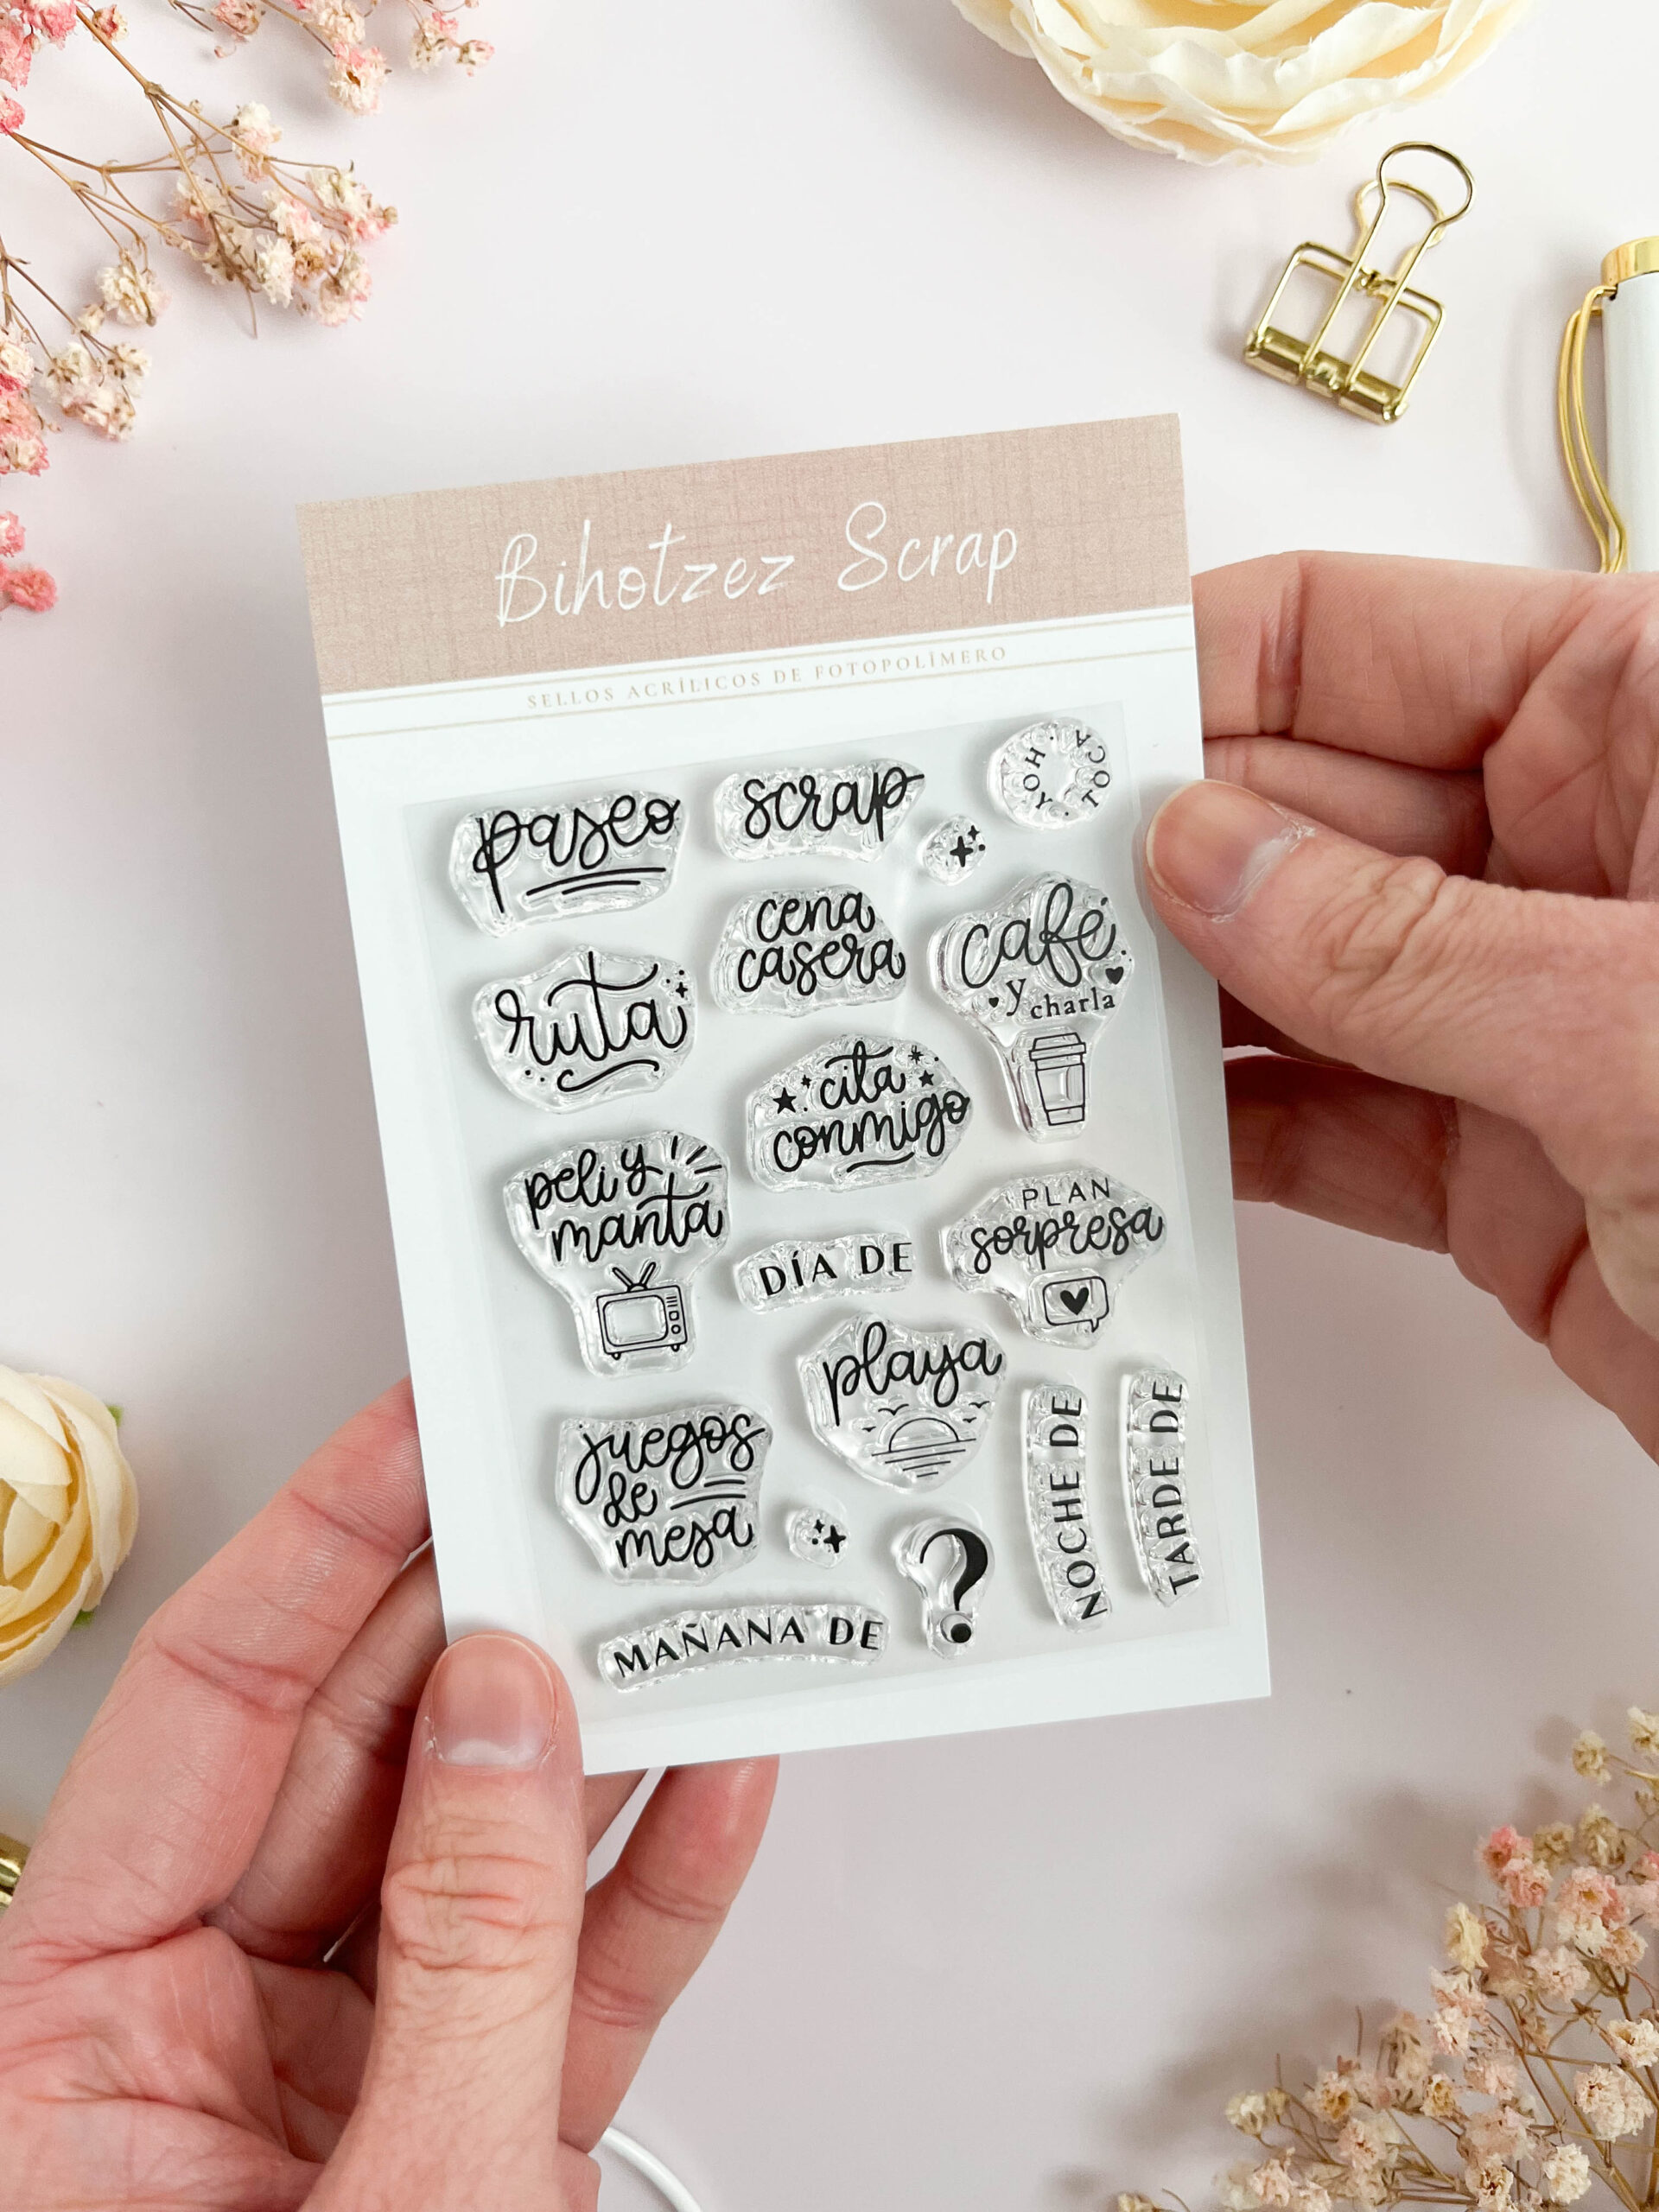 Bihotzez Scrap
SELLOS ACRÍLICOS DE FOTOPOLÍMERO
paseo
scrap
HOY · TOCA ·
ruta
cena
casera
café
y charla
cita
conmigo
peli y
manta
DÍA DE
PLAN
sorpresa
playa
juegos
de
mesa
NOCHE DE
TARDE DE
?
MAÑANA DE